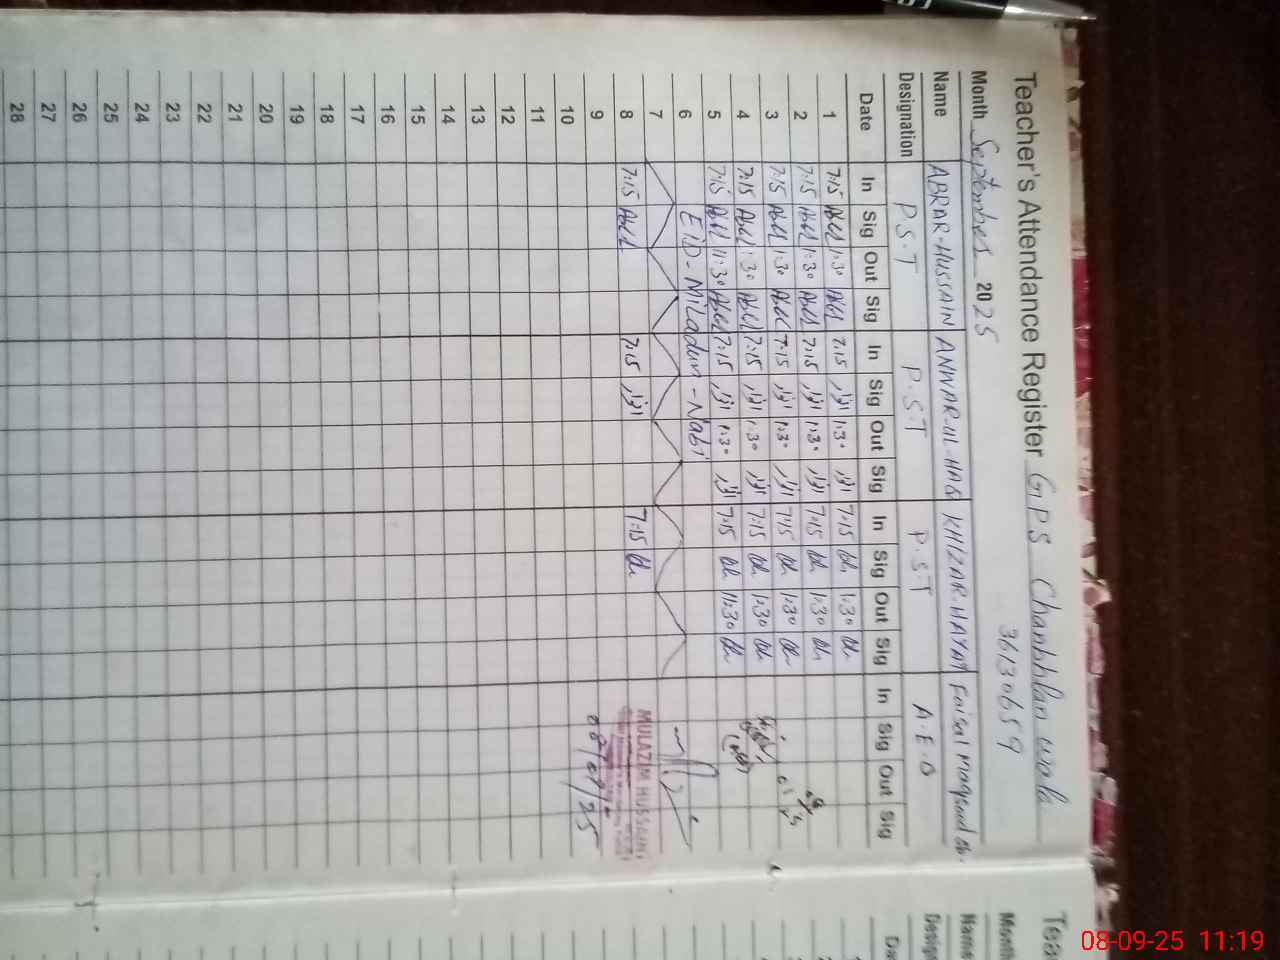 Teacher's Attendance Register GPS Chanbhlan wala
36130659
Month September 2025
Name ABRAR-HUSSAIN ANWAR-UL-HAQ KHIZAR-HAYAT Faisal Maqsood
Designation P.S.T P.S.T P.S.T A.E.O
Date In Sig Out Sig In Sig Out Sig In Sig Out Sig In Sig Out Sig
1 7:15 1:30 7:15 1:30 7:15 1:30
2 7:15 1:30 7:15 1:30 7:15 1:30
3 7:15 1:30 7:15 1:30 7:15 1:30
4 7:15 1:30 7:15 1:30 7:15 1:30
5 7:15 11:30 7:15 1:30 7:15 11:30
6 EID-Miladun-Nabi
7
8 7:15 7:15 7:15 MULAZIM HUSSAIN
9 08/09/25
10
11
12
13
14
15
16
17
18
19
20
21
22
23
24
25
26
27
28
Tea
Month
Name
Design
Da
1
2
08-09-25 11:19